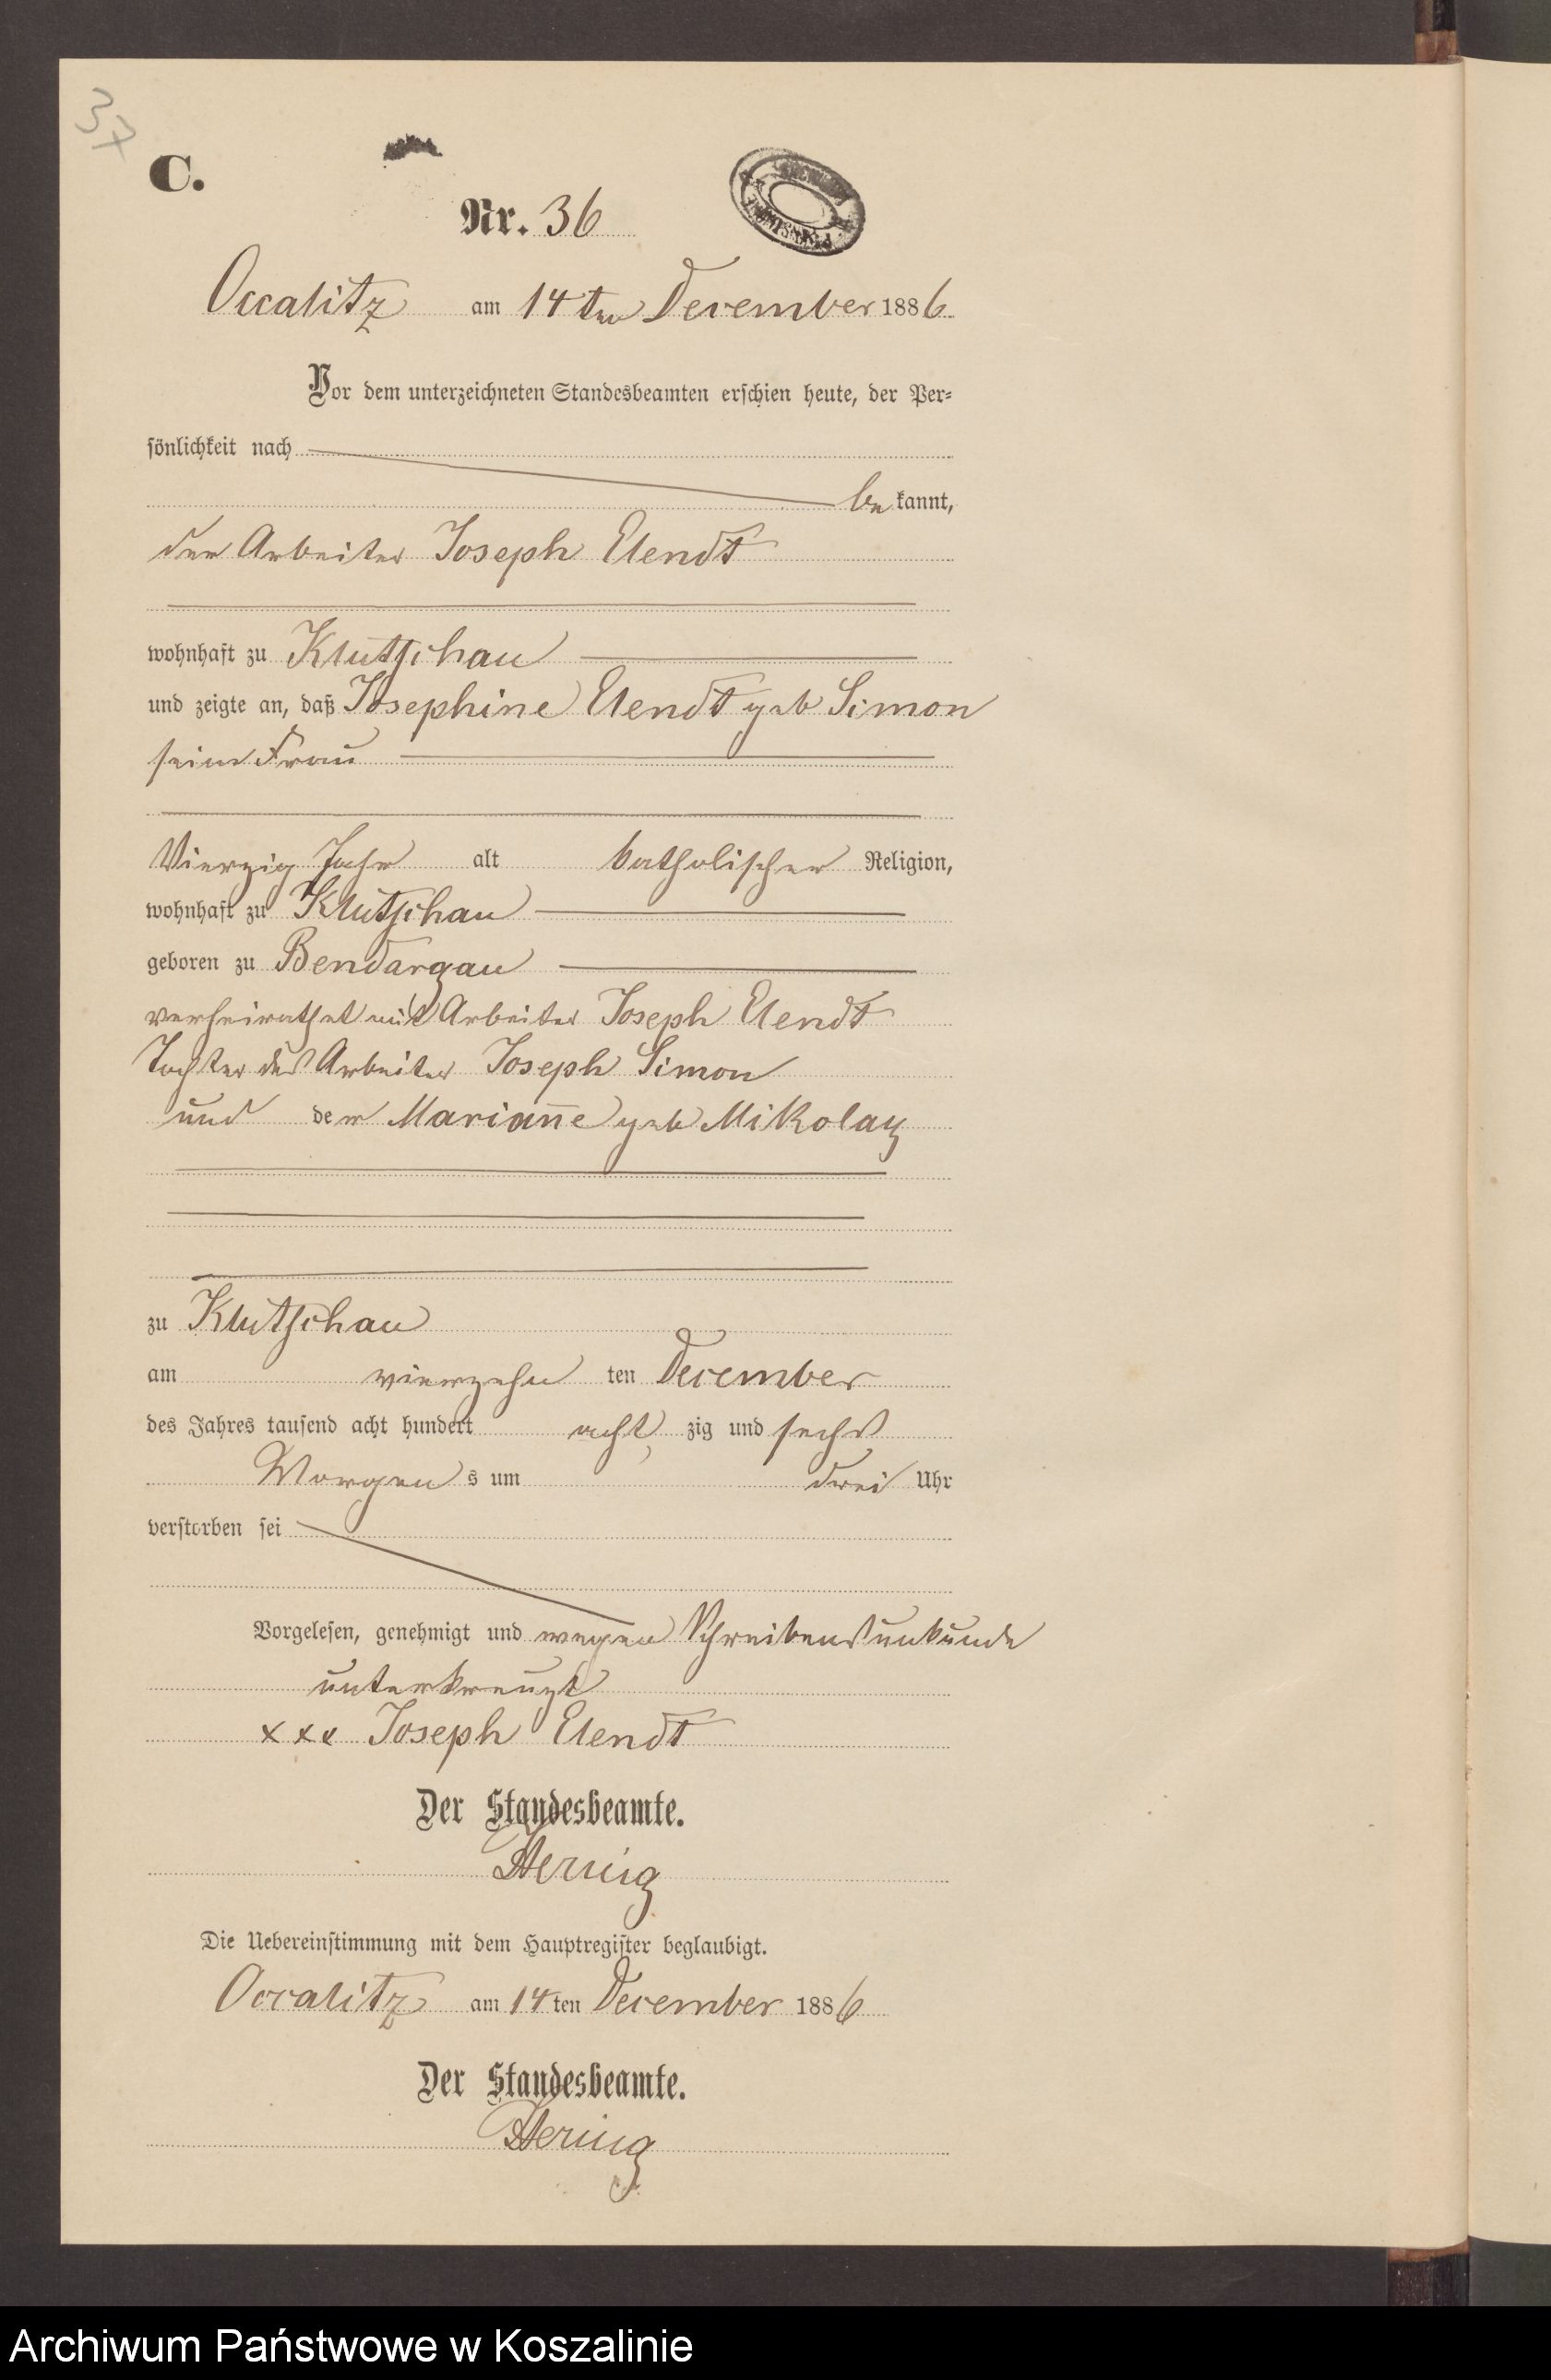 37
C.
Nr. 36
Occalitz am 14ten December 1886
Vor dem unterzeichneten Standesbeamten erschien heute, der Per-
sönlichkeit nach
be kannt,
der Arbeiter Joseph Elendt
wohnhaft zu Klutschau
und zeigte an, daß Josephine Elendt geb Simon
seine Frau
Vierzig Jahr alt katholischer Religion,
wohnhaft zu Klutschau
geboren zu Bendargau
verheirathet mit Arbeiter Joseph Elendt
Tochter des Arbeiter Joseph Simon
und der Marian̄e geb Mikolay
zu Klutschau
am vierzehn ten December
des Jahres tausend acht hundert acht zig und sechs
Morgen s um drei Uhr
verstorben sei
Vorgelesen, genehmigt und wegen Schreibensunkunde
unterkreuzt
xxx Joseph Elendt
Der Standesbeamte.
Hering
Die Uebereinstimmung mit dem Hauptregister beglaubigt.
Occalitz am 14 ten December 1886
Der Standesbeamte.
Hering
Archiwum Państwowe w Koszalinie